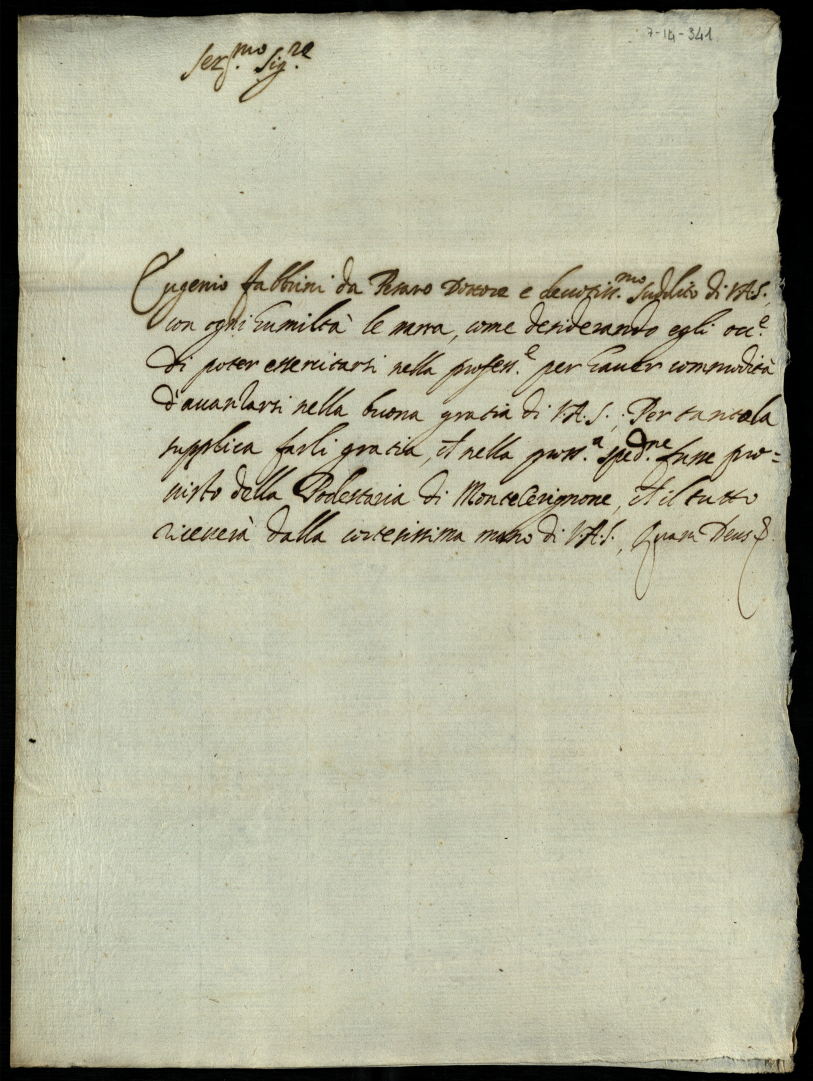 7-14-341
Ser.mo Sig.re
Eugenio fabbrini da Pesaro Dottore e deuotiss.mo suddito di V.A.S.,
con ogni humiltà le narra, come desiderando egli occ.e
di poter essercitarsi nella profess.e per hauer commodità
d'auanzarsi nella buona gratia di V.A.S., Per tanto la
supplica farli gratia, ch nella pross.a sped.ne fusse pro=
uisto della Podestaria di MonteCerignone, ch il tutto
riceuerà dalla cortesissima mano di V.A.S., Quam Deus